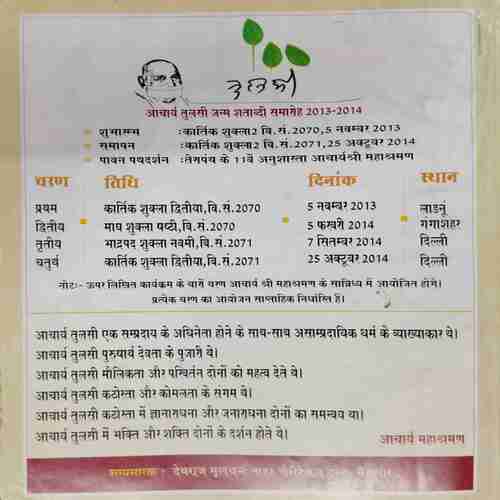 तुलसी
आचार्य तुलसी जन्म शताब्दी समारोह 2013-2014
शुभारम्भ :कार्तिक शुक्ला2 वि.सं.2070,5 नवम्बर 2013
समापन :कार्तिक शुक्ला2 वि.सं.2071,25 अक्टूवर 2014
पावन पथदर्शन :तेरापंथ के 11वें अनुशास्ता आचार्यश्री महाश्रमण
चरण तिथि दिनांक स्थान
प्रथम कार्तिक शुक्ला द्वितीया,वि.सं.2070 5 नवम्बर 2013 लाडनूं
द्वितीय माघ शुक्ला षष्टी,वि.सं.2070 5 फरवरी 2014 गंगाशहर
तृतीय भाद्रपद शुक्ला नवमी,वि.सं.2071 7 सितम्बर 2014 दिल्ली
चतुर्थ कार्तिक शुक्ला द्वितीया,वि.सं.2071 25 अक्टूवर 2014 दिल्ली
नोटः- ऊपर लिखित कार्यकम के चारों चरण आचार्य श्री महाश्रमण के सान्निध्य में आयोजित होगें।
प्रत्येक चरण का आयोजन साप्ताहिक निर्धारित है।
आचार्य तुलसी एक सम्प्रदाय के अधिनेता होने के साथ-साथ असाम्प्रदायिक धर्म के व्याख्याकार थे।
आचार्य तुलसी पुरुषार्थ देवता के पुजारी थे।
आचार्य तुलसी मौलिकता और परिवर्तन दोनों को महत्व देते थे।
आचार्य तुलसी कठोरता और कोमलता के संगम थे।
आचार्य तुलसी कठोरता में ज्ञानाराधना और जनाराधना दोनों का समन्वय था।
आचार्य तुलसी में भक्ति और शक्ति दोनों के दर्शन होते थे।
आचार्य महाश्रमण
देवराज मूलचन्द नाहर